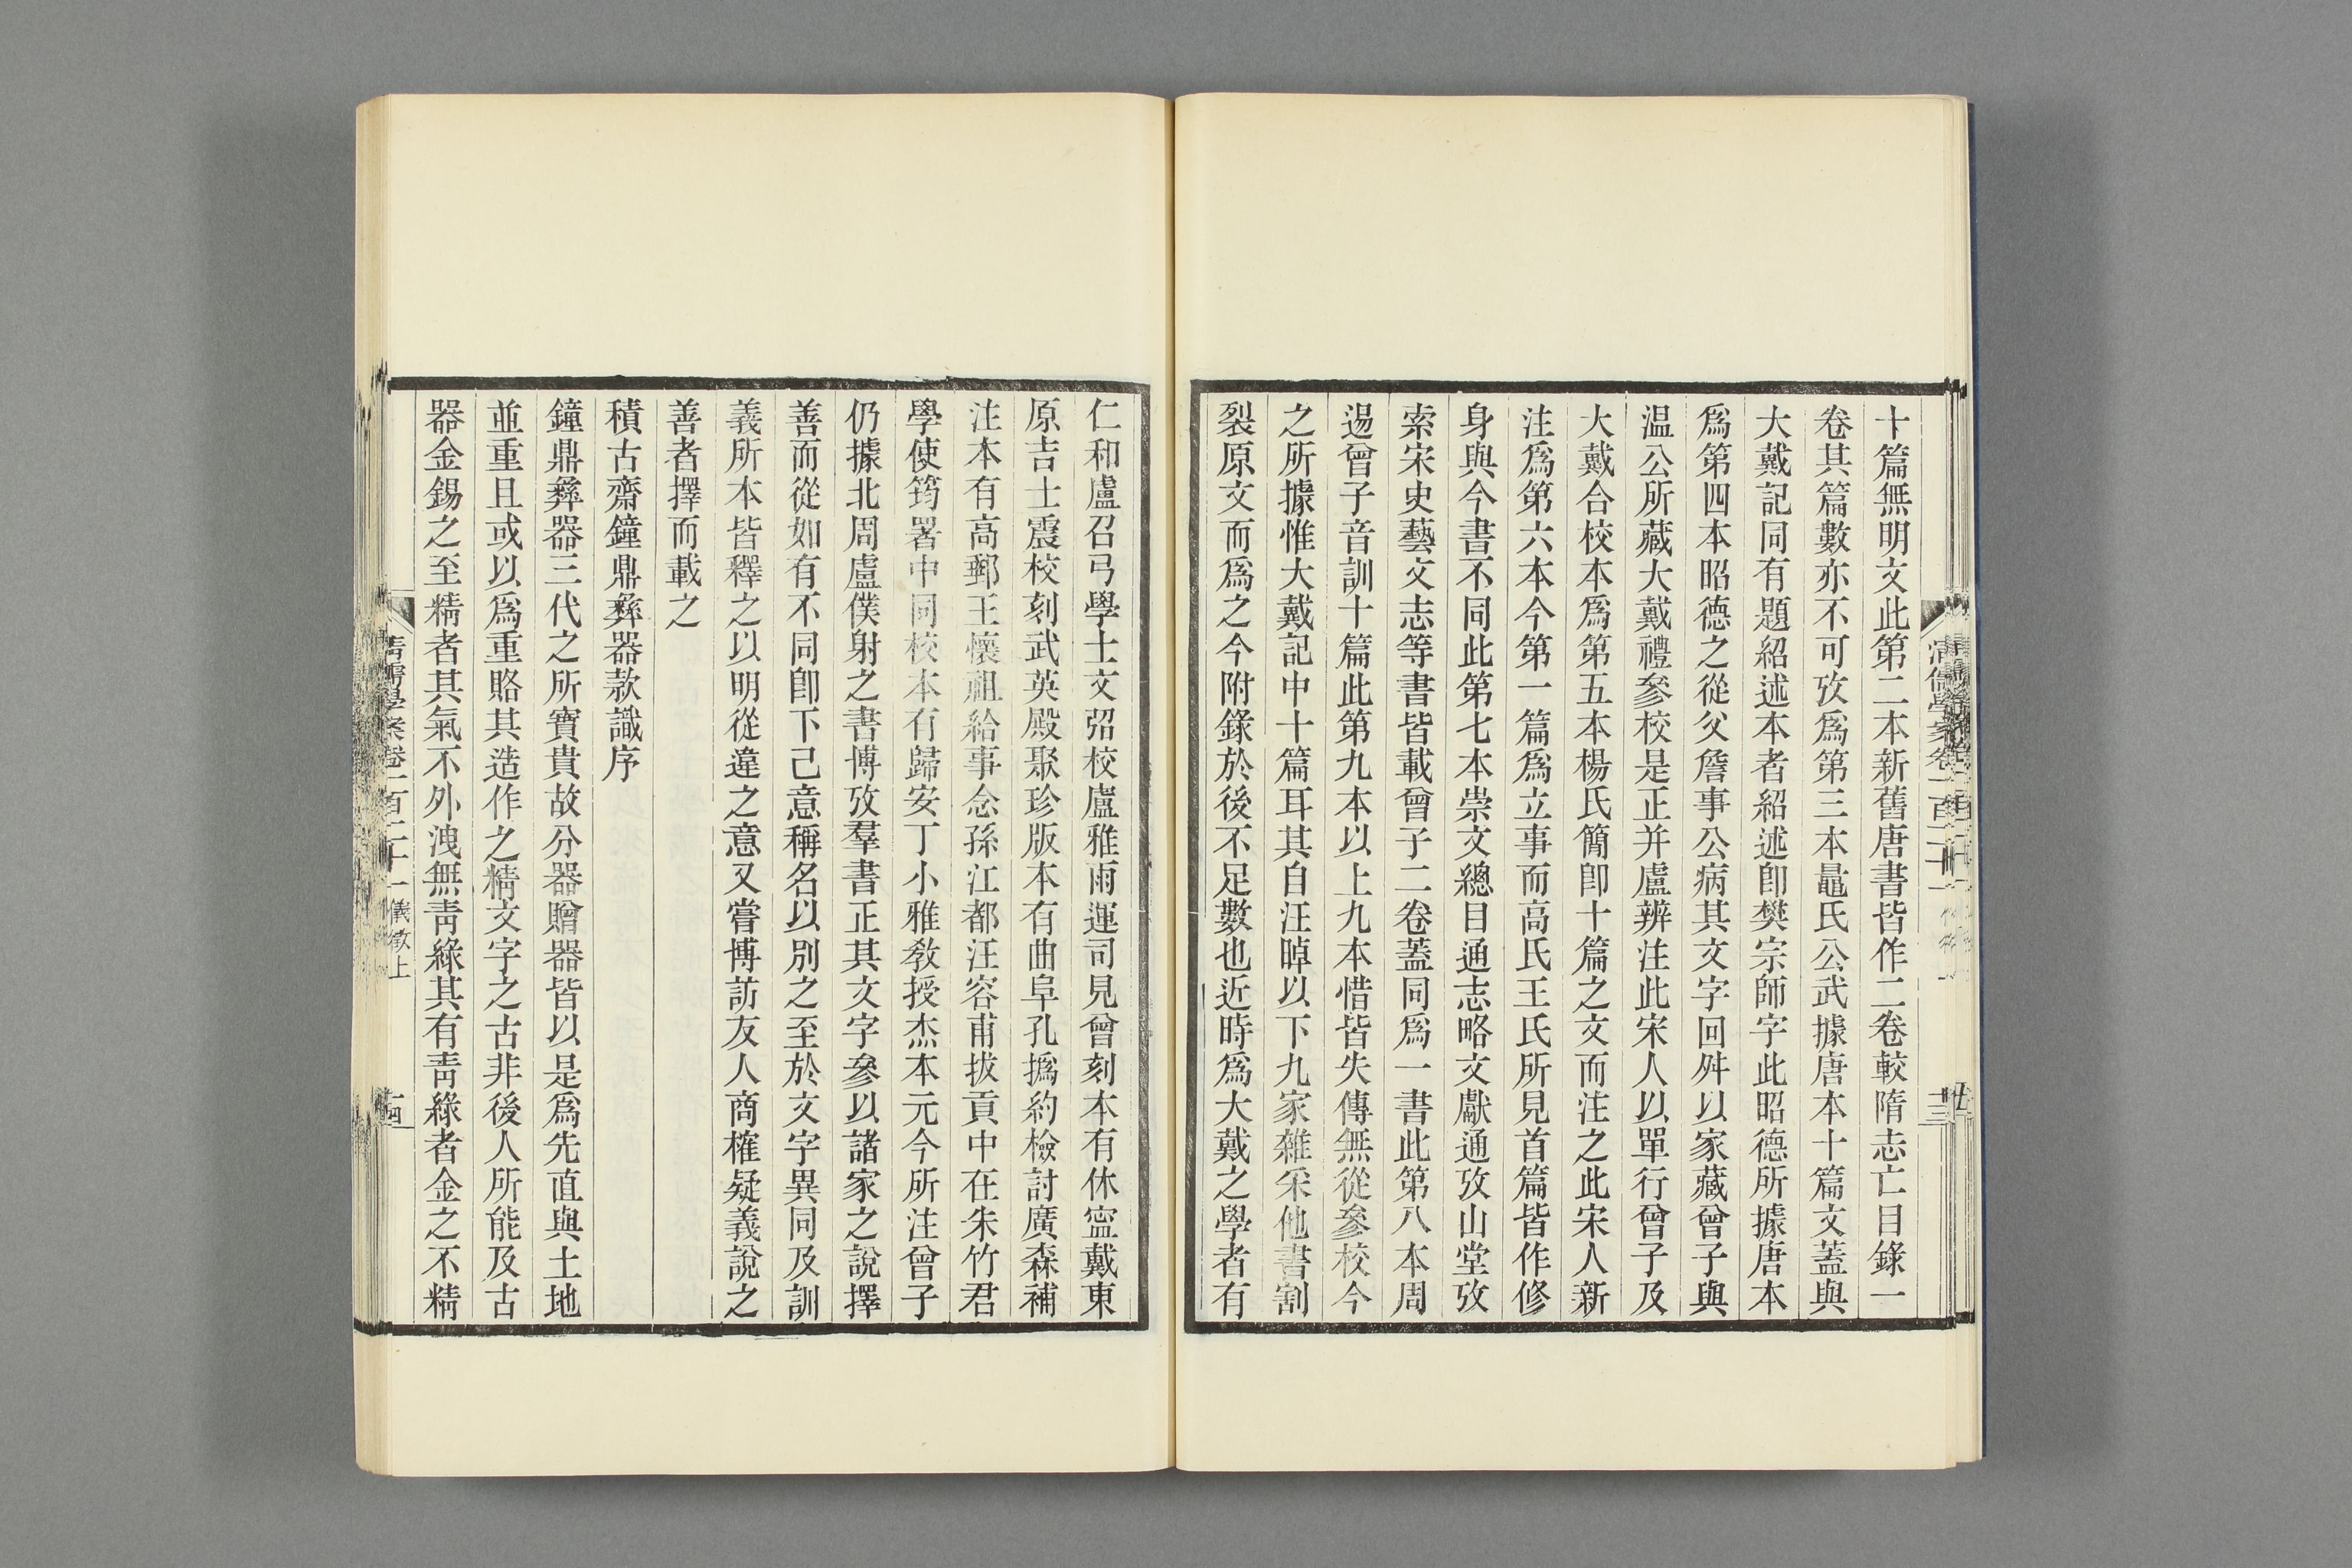 十篇無明文此第二本新舊唐書皆作二卷較隋志亡目錄一
卷其篇數亦不可攷爲第三本鼂氏公武據唐本十篇文蓋與
大戴記同有題紹述本者紹述卽樊宗師字此昭德所據唐本
爲第四本昭德之從父詹事公病其文字回舛以家藏曾子與
温公所藏大戴禮參校是正并盧辨注此宋人以單行曾子及
大戴合校本爲第五本楊氏簡卽十篇之文而注之此宋人新
注爲第六本今第一篇爲立事而高氏王氏所見首篇皆作修
身與今書不同此第七本崇文總目通志略文獻通攷山堂攷
索宋史藝文志等書皆載曾子二卷蓋同爲一書此第八本周
逷曾子音訓十篇此第九本以上九本惜皆失傳無從參校今
之所據惟大戴記中十篇耳其自汪晫以下九家雜采他書割
裂原文而爲之今附錄於後不足數也近時爲大戴之學者有
仁和盧召弓學士文弨校盧雅雨運司見曾刻本有休寧戴東
原吉士震校刻武英殿聚珍版本有曲阜孔撝約檢討廣森補
注本有高郵王懷祖給事念孫江都汪容甫拔貢中在朱竹君
學使筠署中同校本有歸安丁小雅敎授杰本元今所注曾子
仍據北周盧僕射之書博攷羣書正其文字參以諸家之說擇
善而從如有不同卽下己意稱名以別之至於文字異同及訓
義所本皆釋之以明從違之意又嘗博訪友人商榷疑義說之
善者擇而載之
積古齋鐘鼎彝器款識序
鐘鼎彝器三代之所寶貴故分器贈器皆以是爲先直與土地
並重且或以爲重賂其造作之精文字之古非後人所能及古
器金錫之至精者其氣不外洩無靑綠其有靑綠者金之不精
清儒學案卷一百二十一 儀徵上
十四